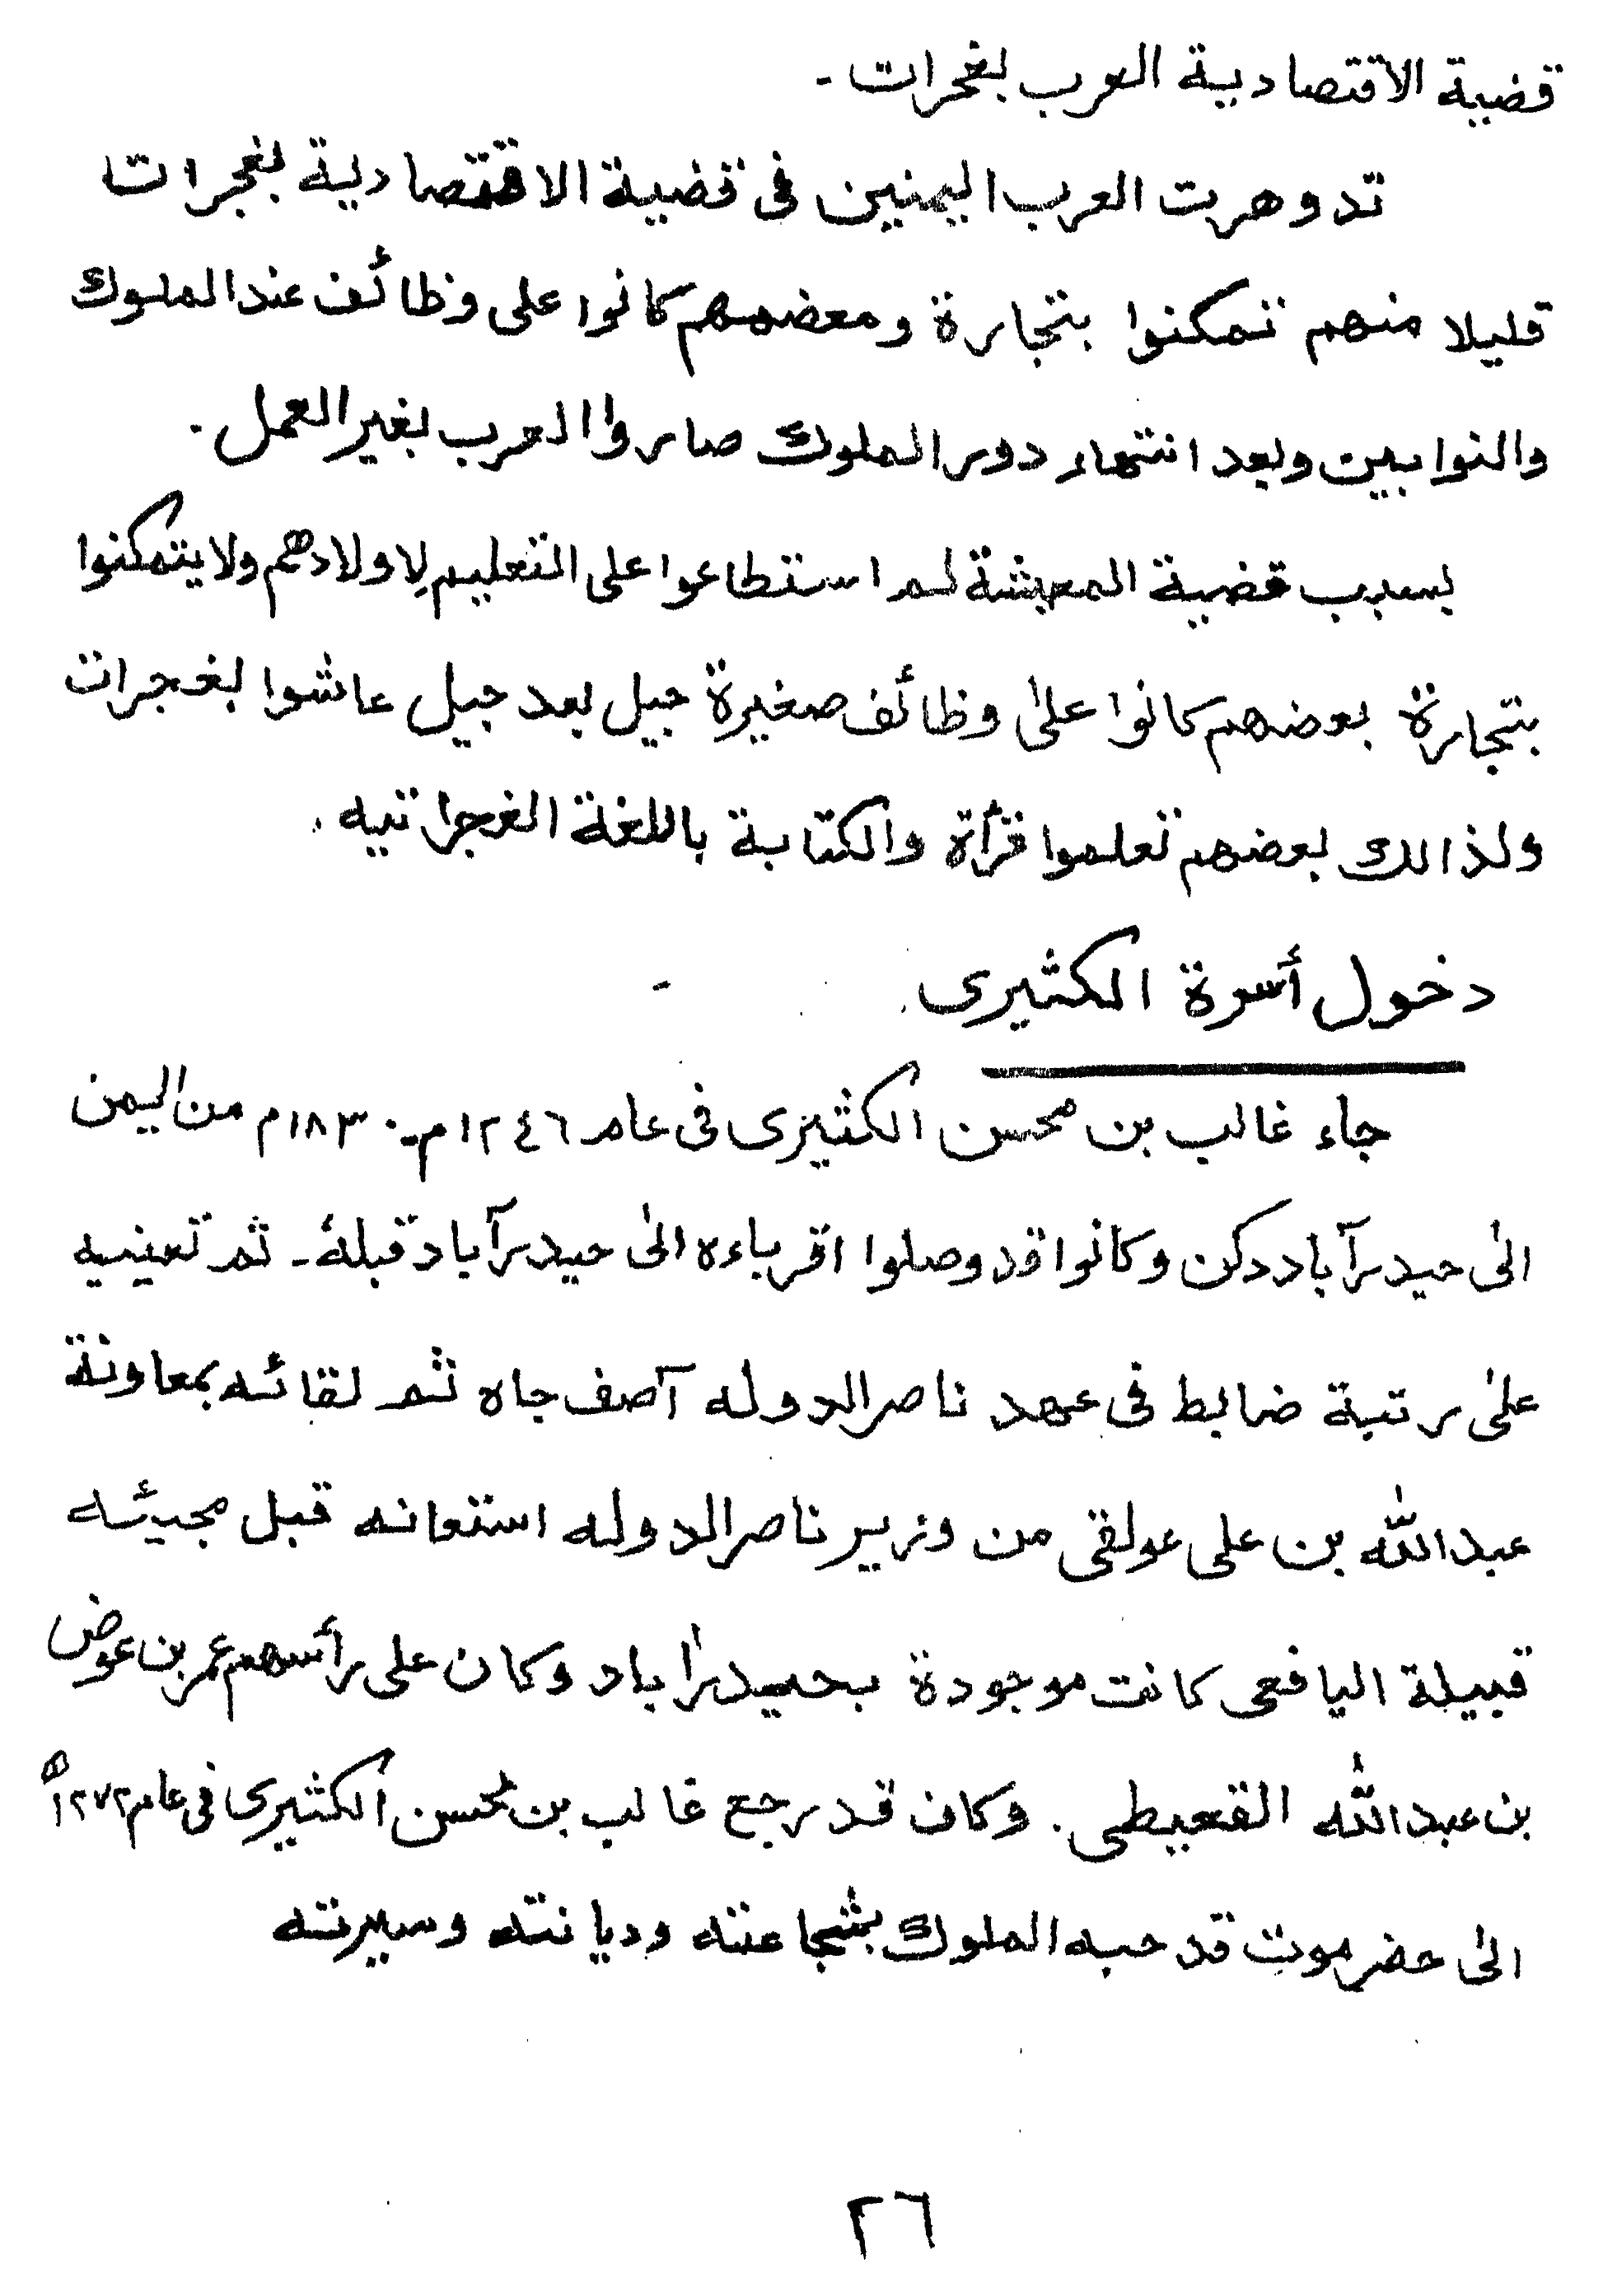 قضية الاقتصادية العرب بغجرات -
تدوهرت العرب اليمنين فى قضية الاقتصادية بغجرات
قليلا منهم تمكنوا بتجارة ومعضهم كانوا على وظائف عند الملوك
والنوابين وبعد انتهاء دور الملوك صاروا العرب بغير العمل .
بسبب قضية المعيشة لم استطاعوا على التعليم لِاولادهم ولا يتمكنوا
بتجارة بعضهم كانوا علىٰ وظائف صغيرة جيل بعد جيل عاشوا بغجرات
ولذالك بعضهم تعلموا قرأة والكتابة باللغة الغجراتيه .
دخول أسرة الكثيرى . -
جاء غالب بن محسن الكثيرى فى عام ١٢٤٦م - ١٨٣٠م من اليمن
الىٰ حيدرآباد دكن وكانوا قد وصلوا اقرباءه الىٰ حيدرآباد قبلهٔ - ثم تعينيه
علىٰ رتبة ضابط فى عهد ناصر الدوله آصف جاه ثم لقائه بمعاونة
عبد اللّٰه بن على عولقى من وزير ناصر الدوله استعانه قبل مجيئه
قبيلة اليافعى كانت موجودة بحيدرٰاباد وكان على رأسهم عمر بن عوض
بن عبد اللّٰه القعيطى . وكان قد رجع غالب بن محسن الكثيرى فى عام ١٢٧٢ھ
الىٰ حضرموت قد حبه الملوك بشجاعته وديانته وسيرته
٢٦